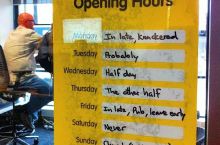 Opening Hours
Monday In late, Knackered
Tuesday Probably
Wednesday Half day
Thursday The other half
Friday In late, Pub, leave early
Saturday Never
Sunday